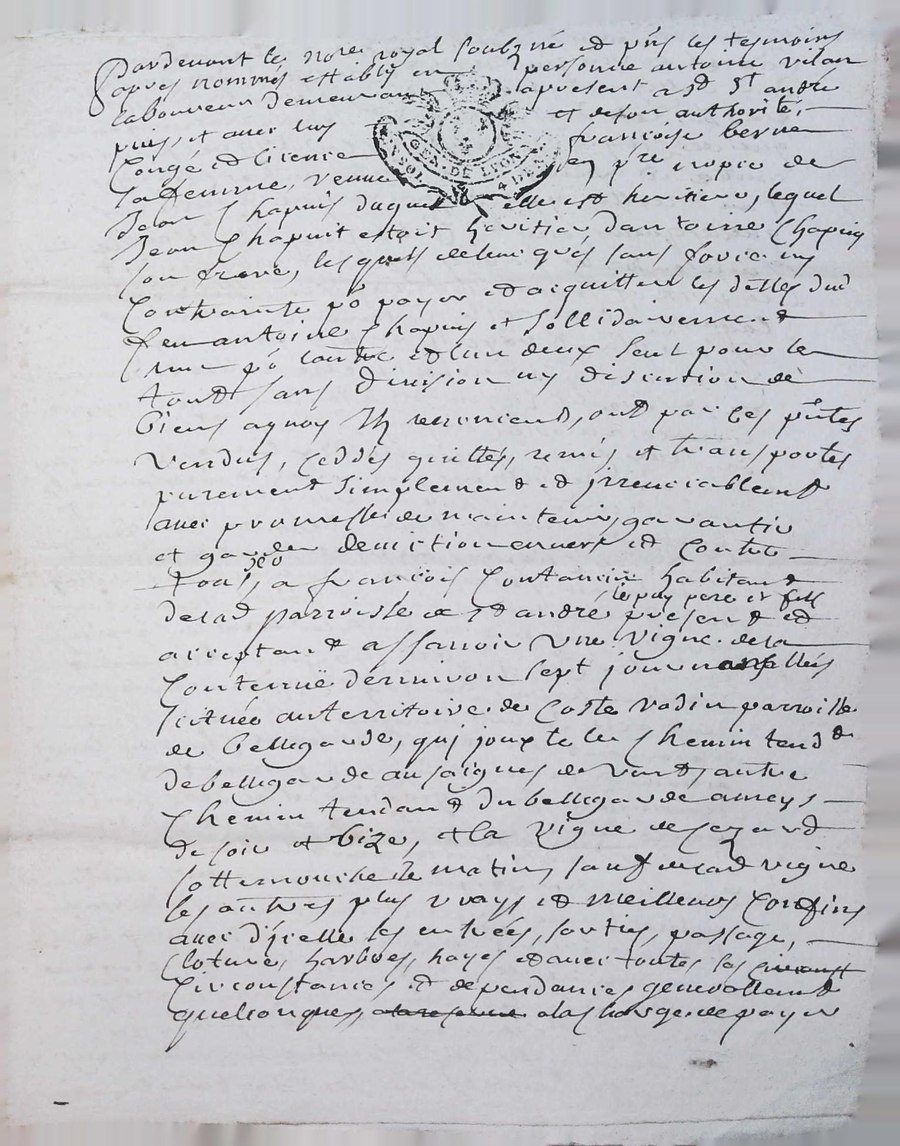 Pardevant le no.re royal soub.né et p̃ns les tesmoins
apres nommés establi en personne antoine
laboureur demeurant apresent a S.t andré
puis, et avec luy et de son authorité,
Congé et licence françoise
sa femme, veuve
Jean Chapuis duquel elle est heritiere, lequel
Jean Chapuit estoit heritier dantoine Chapuis
son frere, lesquels de leur gré sans force ny
Contrainte p.r payer et acquitter les dettes dud
feu antoine Chapuis et Sollidairement
l'un p.r lautre et lun deux seul pour le
tout sans Division ny discution de
biens aquoy Ils renoncent, ont par ces p̃ntes
Vendus, Ceddés quittés, remis et transportés
purement Simplement et irrevocablemt
avec promesse de maintenir, garantir
et garder deviction envers et Contre
tous, a françois habitant
le puy pere et fils
de lad parroisse de St andré présent et
acceptant assavoir une vigne de la
Contenuë denviron sept journallées
scituée au territoire de Coste parroisse
de bellegarde, qui jouxte le Chemin tend.t
de bellegarde au autre
Chemin tendant du bellegarde a
de soir et bize, et la vigne de
matin, sauf de lad vigne
les autres plus vrays et meilleurs Confins
avec dicelle les entrées, sorties, passage,
Cloture, harbres, hayes et avec toutes les
Circonstances et dependances generallemt
quelconques, a la charge de payer
GEN. DE LYON